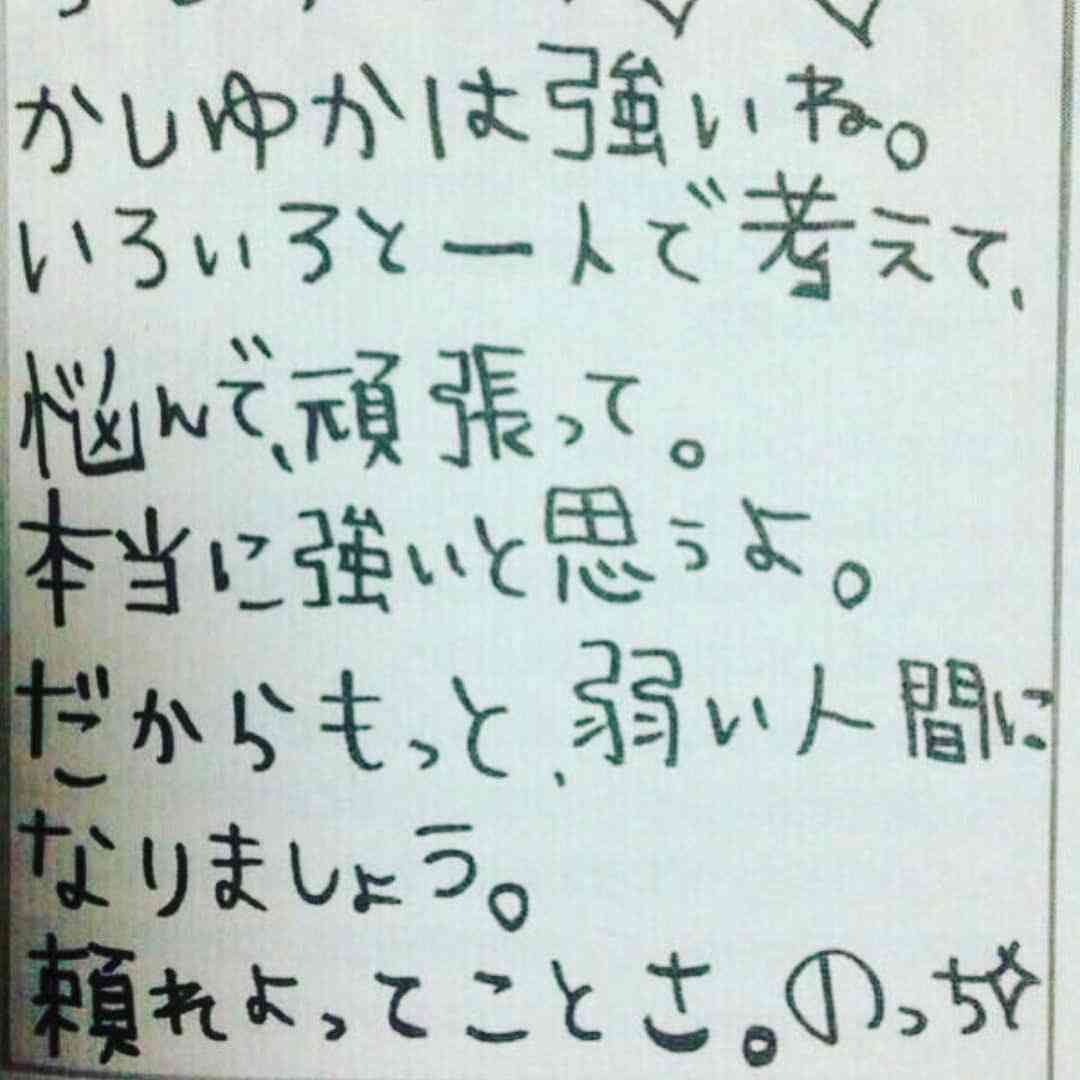 かしゆかは強いね。
いろいろと一人で考えて、
悩んで、頑張って。
本当に強いと思うよ。
だからもっと、弱い人間に
なりましょう。
頼れよってことさ。のっち☆